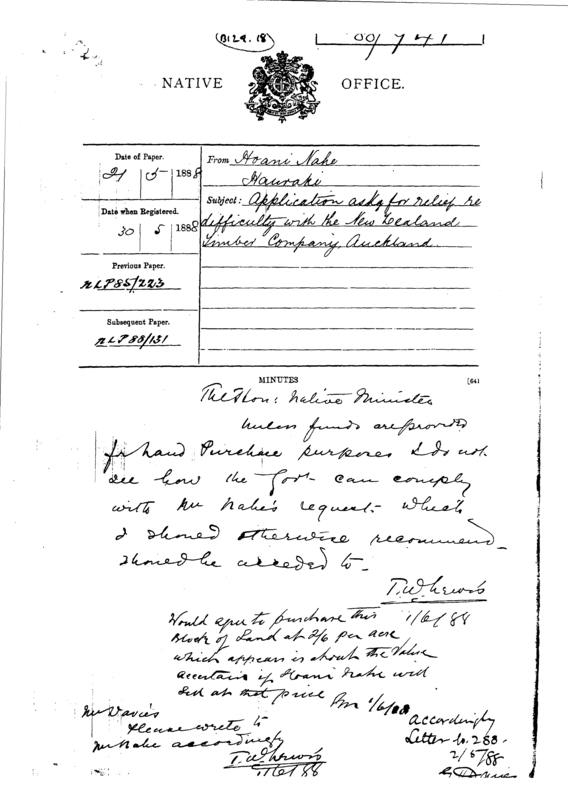 (B129. 18)
00/741
NATIVE OFFICE.
Date of Paper.
21 5 1888
Date when Registered.
30 5 1888
Previous Paper.
NLP85/223
Subsequent Paper.
NLP88/131
From Hoani Nahe
Hauraki
Subject: Application askg for relief re
difficulty with the New Zealand
Timber Company, Auckland.
MINUTES
[641
The Hon: Native Minister
Unless funds are provided
for Land Purchase purposes I do not
see how the Govt can comply
with Mr Nahe's request - which
I should otherwise recommend
should be acceded to -
T.W. Lewis
1/6/88
Would agree to purchase this
Block of Land at 2/6 per acre
which appears is about the Value
ascertain if Hoani Nahe will
sell at that price
1/6/88
Mr Davies
Please write to
Mr Nahe accordingly
T.W. Lewis
1/6/88
accordingly
Letter No. 288.
2/6/88